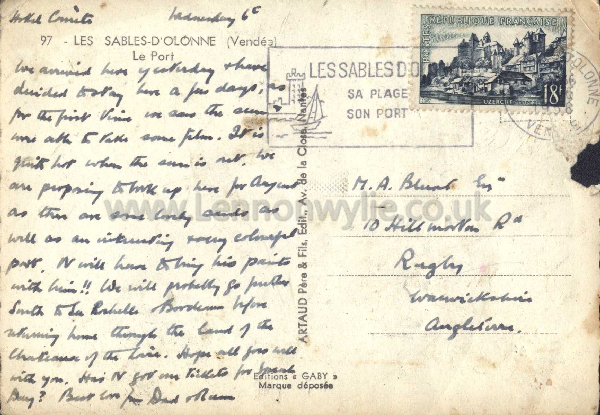 Hotel Comète Wednesday 6th
97 - LES SABLES-D'OLONNE (Vendée)
Le Port
We arrived here yesterday & have
decided to stay here a few days, as
for the first time we saw the sun &
were able to take some films. It is
quite hot when the sun is out. We
are proposing to book up here for August
as there are some lovely sands as
well as an interesting & very colourful
port. N will have to bring his paints
with him!! We will probably go further
South to La Rochelle & Bordeaux before
returning home through the land of the
Chateaux of the Loire. Hope all goes well
with you. Has N got our tickets for
Day? Best love from Dad & Mum
ARTAUD Père & Fils, Edit., Av. de la Close, Nantes
Editions « GABY »
Marque déposée
LES SABLES D'O
SA PLAGE
SON PORT
REPUBLIQUE FRANÇAISE
POSTES
UZERCHE
18F
OLONNE
VEN
M. A. Blunt Esq
10 Hillmorton Rd
Rugby
Warwickshire
Angleterre.
www.Lennonwylie.co.uk